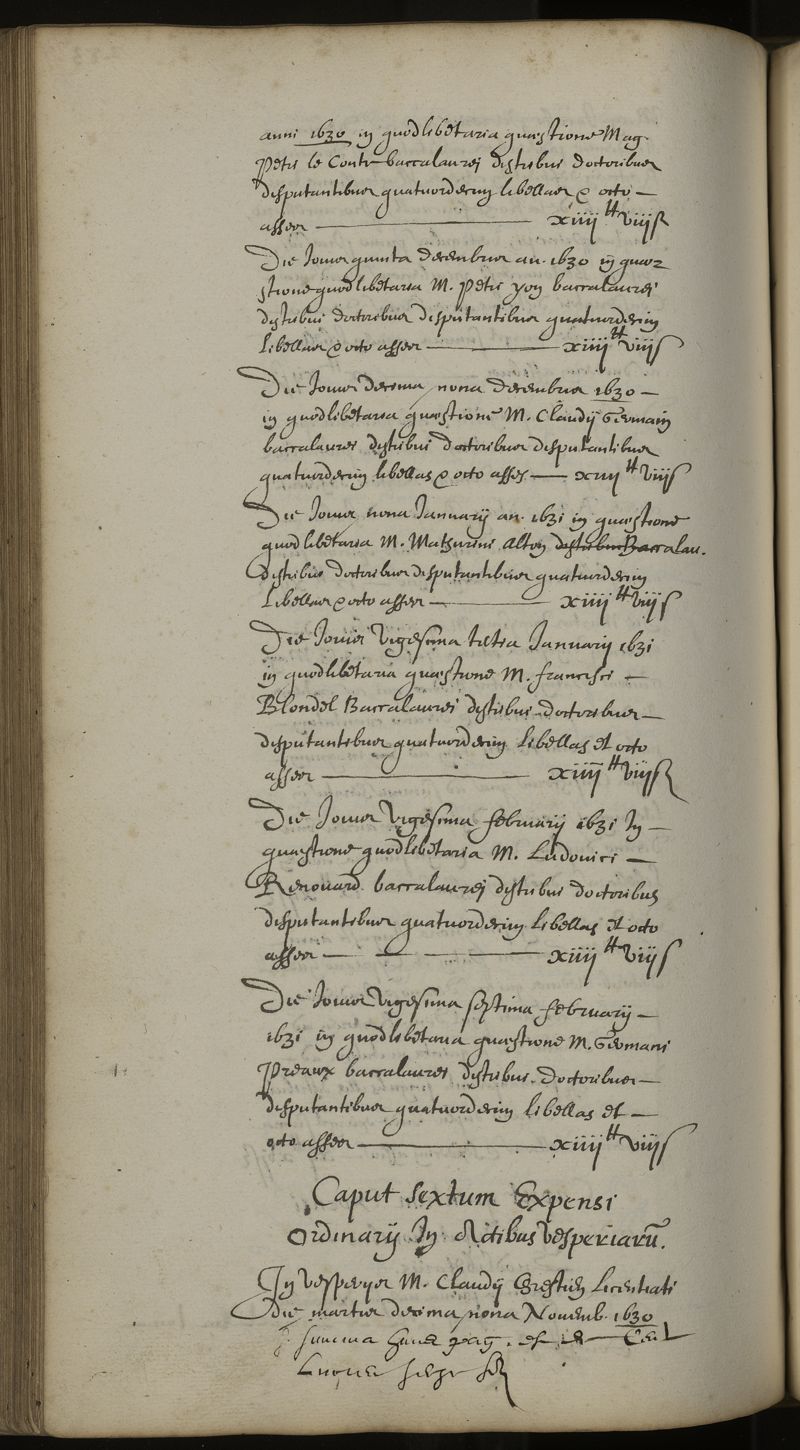 anni 1630 in quodlibetaria quaestione Mag.
Petri le Conte baccalaurei distribui doctoribus
disputantibus quatuordecim libellas & octo —
asses — xiiij ᵗᵗ viij s
Die Jovis quinta decembris an. 1630 in quae=
stione quodlibetaria M. Petri yon baccalaurei
distribui doctoribus disputantibus quatuordecim
libellas & octo asses — xiiij ᵗᵗ viij s
Die Jovis decima nona decembris 1630 —
in quodlibetaria quaestione M. Claudij Germain
baccalaurei distribui doctoribus disputantibus
quatuordecim libellas & octo asses — xiiij ᵗᵗ viij s
Die Jovis nona Januarij an. 1631 in quaestione
quodlibetaria M. Mathurini Alton distribui Baccalau.
distribui doctoribus disputantibus quatuordecim
libellas & octo asses — xiiij ᵗᵗ viij s
Die Jovis vigesima tertia Januarij 1631
in quodlibetaria quaestione M. francisci —
Blondel Baccalaurei distribui doctoribus —
disputantibus quatuordecim libellas et octo
asses — xiiij ᵗᵗ viij s
Die Jovis vigesima februarij 1631 In —
quaestione quodlibetaria M. Ludovici —
Renouard baccalaurei distribui doctoribus
disputantibus quatuordecim libellas et octo
asses — xiiij ᵗᵗ viij s
Die Jovis vigesima septima februarij —
1631 in quodlibetaria quaestione M. Germani
Preaux baccalaurei distribui doctoribus —
disputantibus quatuordecim libellas et —
octo asses — xiiij ᵗᵗ viij s
Caput sextum Expensi
Ordinarij In Actibus vesperiarū.
In vesperijs M. Claudij Licentiati
die martis decima nona Novemb. 1630
summa pag. est